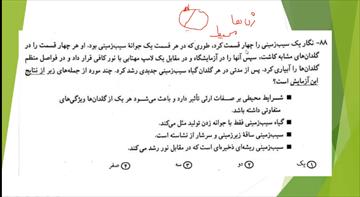 ژن‌ها
محیط
۸۸- نگار یک سیب‌زمینی را چهار قسمت کرد، طوری که در هر قسمت یک جوانهٔ سیب‌زمینی بود. او هر چهار قسمت را در
گلدان‌های مشابه کاشت، سپس آنها را در آزمایشگاه و در مقابل یک لامپ مهتابی با نور کافی قرار داد و در فواصل منظم
گلدان‌ها را آبیاری کرد. پس از مدتی در هر گلدان گیاه سیب‌زمینی جدیدی رشد کرد. چند مورد از جمله‌های زیر از نتایج
این آزمایش است؟
■ شرایط محیطی بر صفات ارثی تأثیر دارد و باعث می‌شود هر یک از گلدان‌ها ویژگی‌های
متفاوتی داشته باشد.
■ گیاه سیب‌زمینی فقط با جوانه زدن تولید مثل می‌کند.
■ سیب‌زمینی ساقهٔ زیرزمینی و سرشار از نشاسته است.
■ سیب‌زمینی ریشه‌ای ذخیره‌ای است که در مقابل نور رشد می‌کند.
۱) یک ۲) دو ۳) سه ۴) صفر